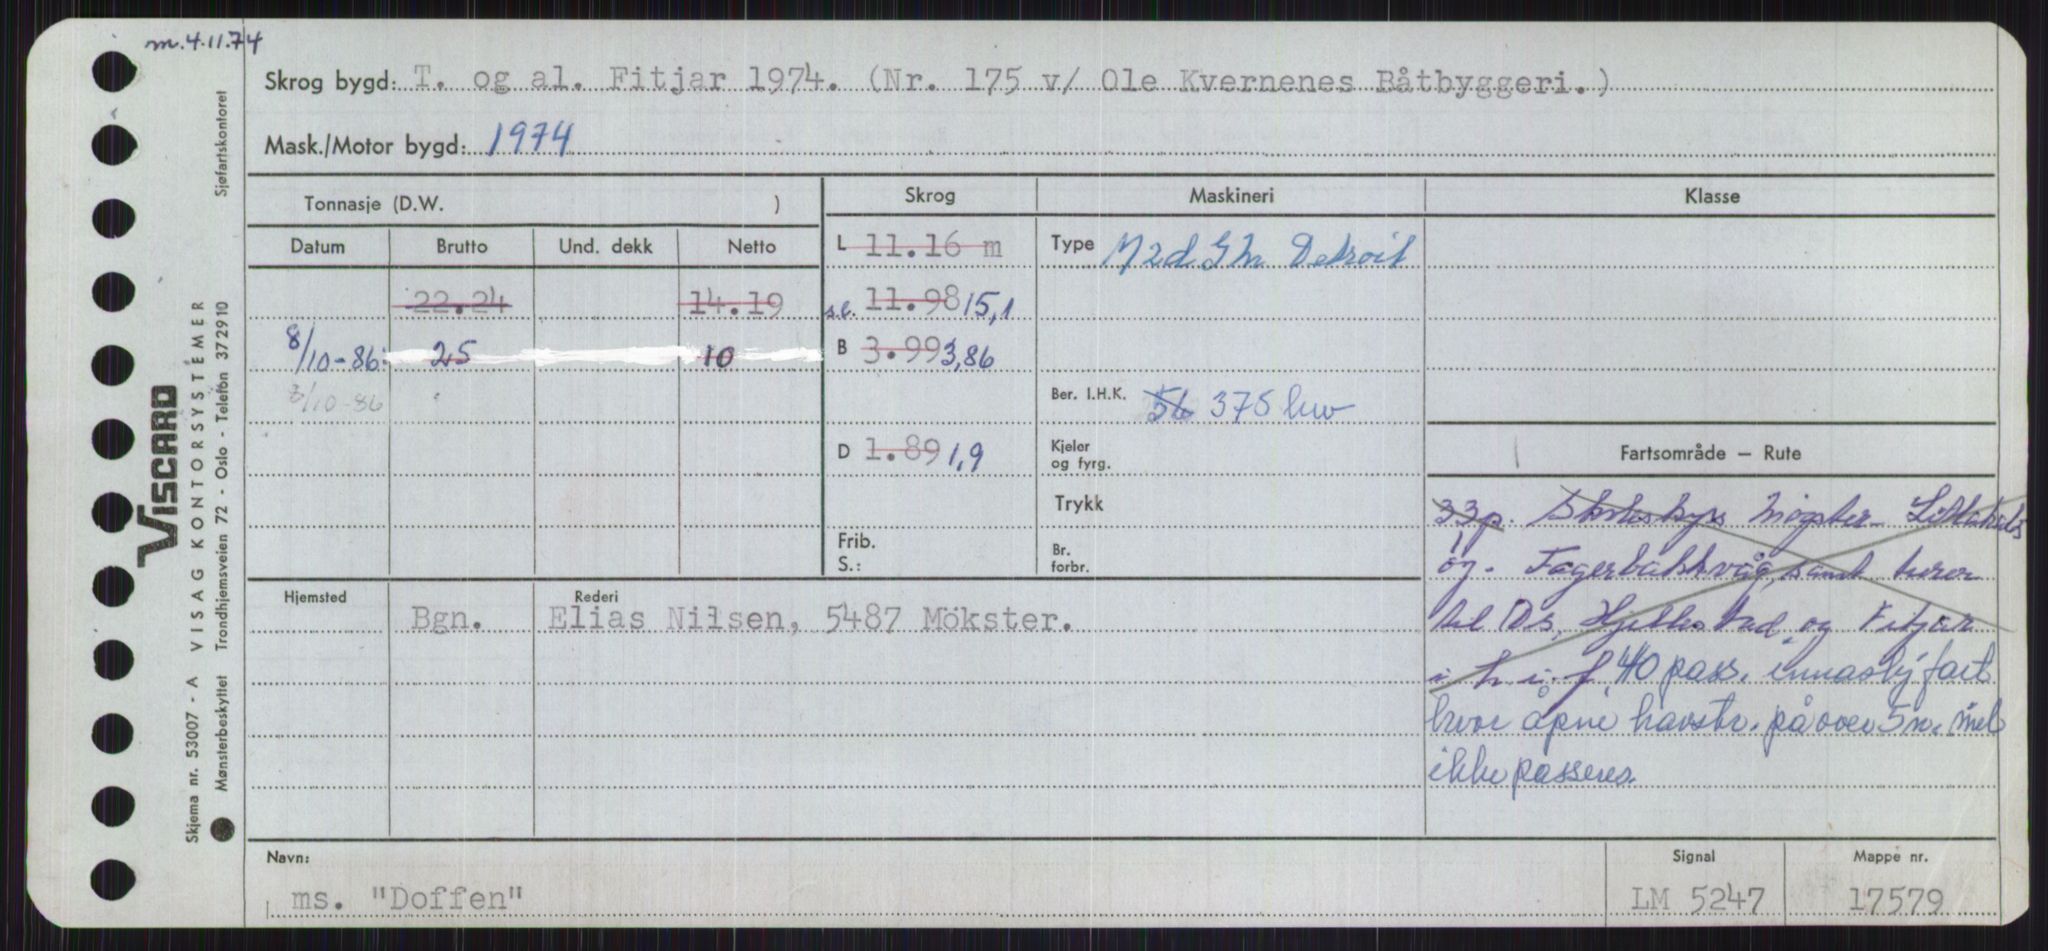 m. 4.11.74
Skrog bygd: T. og al. Fitjar 1974. (Nr. 175 v/ Ole Kvernenes Båtbyggeri.)
Mask./Motor bygd: 1974
Tonnasje (D.W. ) Skrog Maskineri Klasse
Datum Brutto Und. dekk Netto
L 11.16 m
Type Detroit
22.24 14.19
s.l. 11.98 15,1
8/10-86 25 10
B 3.99 3,86
8/10-86
Ber. I.H.K. 56 375 kw
D 1.89 1,9
Kjeler
og fyrg.
Trykk
Frib.
S.:
Br.
forbr.
Fartsområde — Rute
33 p. Skoleskyss Møgster -
og Fagerbakkvåg, samt turer
til Os, Hjellestad og Fitjar
i h i f. 40 pass. innaskj fart
hvor åpne havstr. på over 5 n. mil
ikke passeres.
Hjemsted Rederi
Bgn. Elias Nilsen, 5487 Mökster.
Navn:
ms. "Doffen"
Signal
LM 5247
Mappe nr.
17579
Sjøfartskontoret
VISCARD
Skjema nr. 53007 - A VISAG KONTORSYSTEMER
Mønsterbeskyttet Trondhjemsveien 72 - Oslo - Telefon 37 29 10